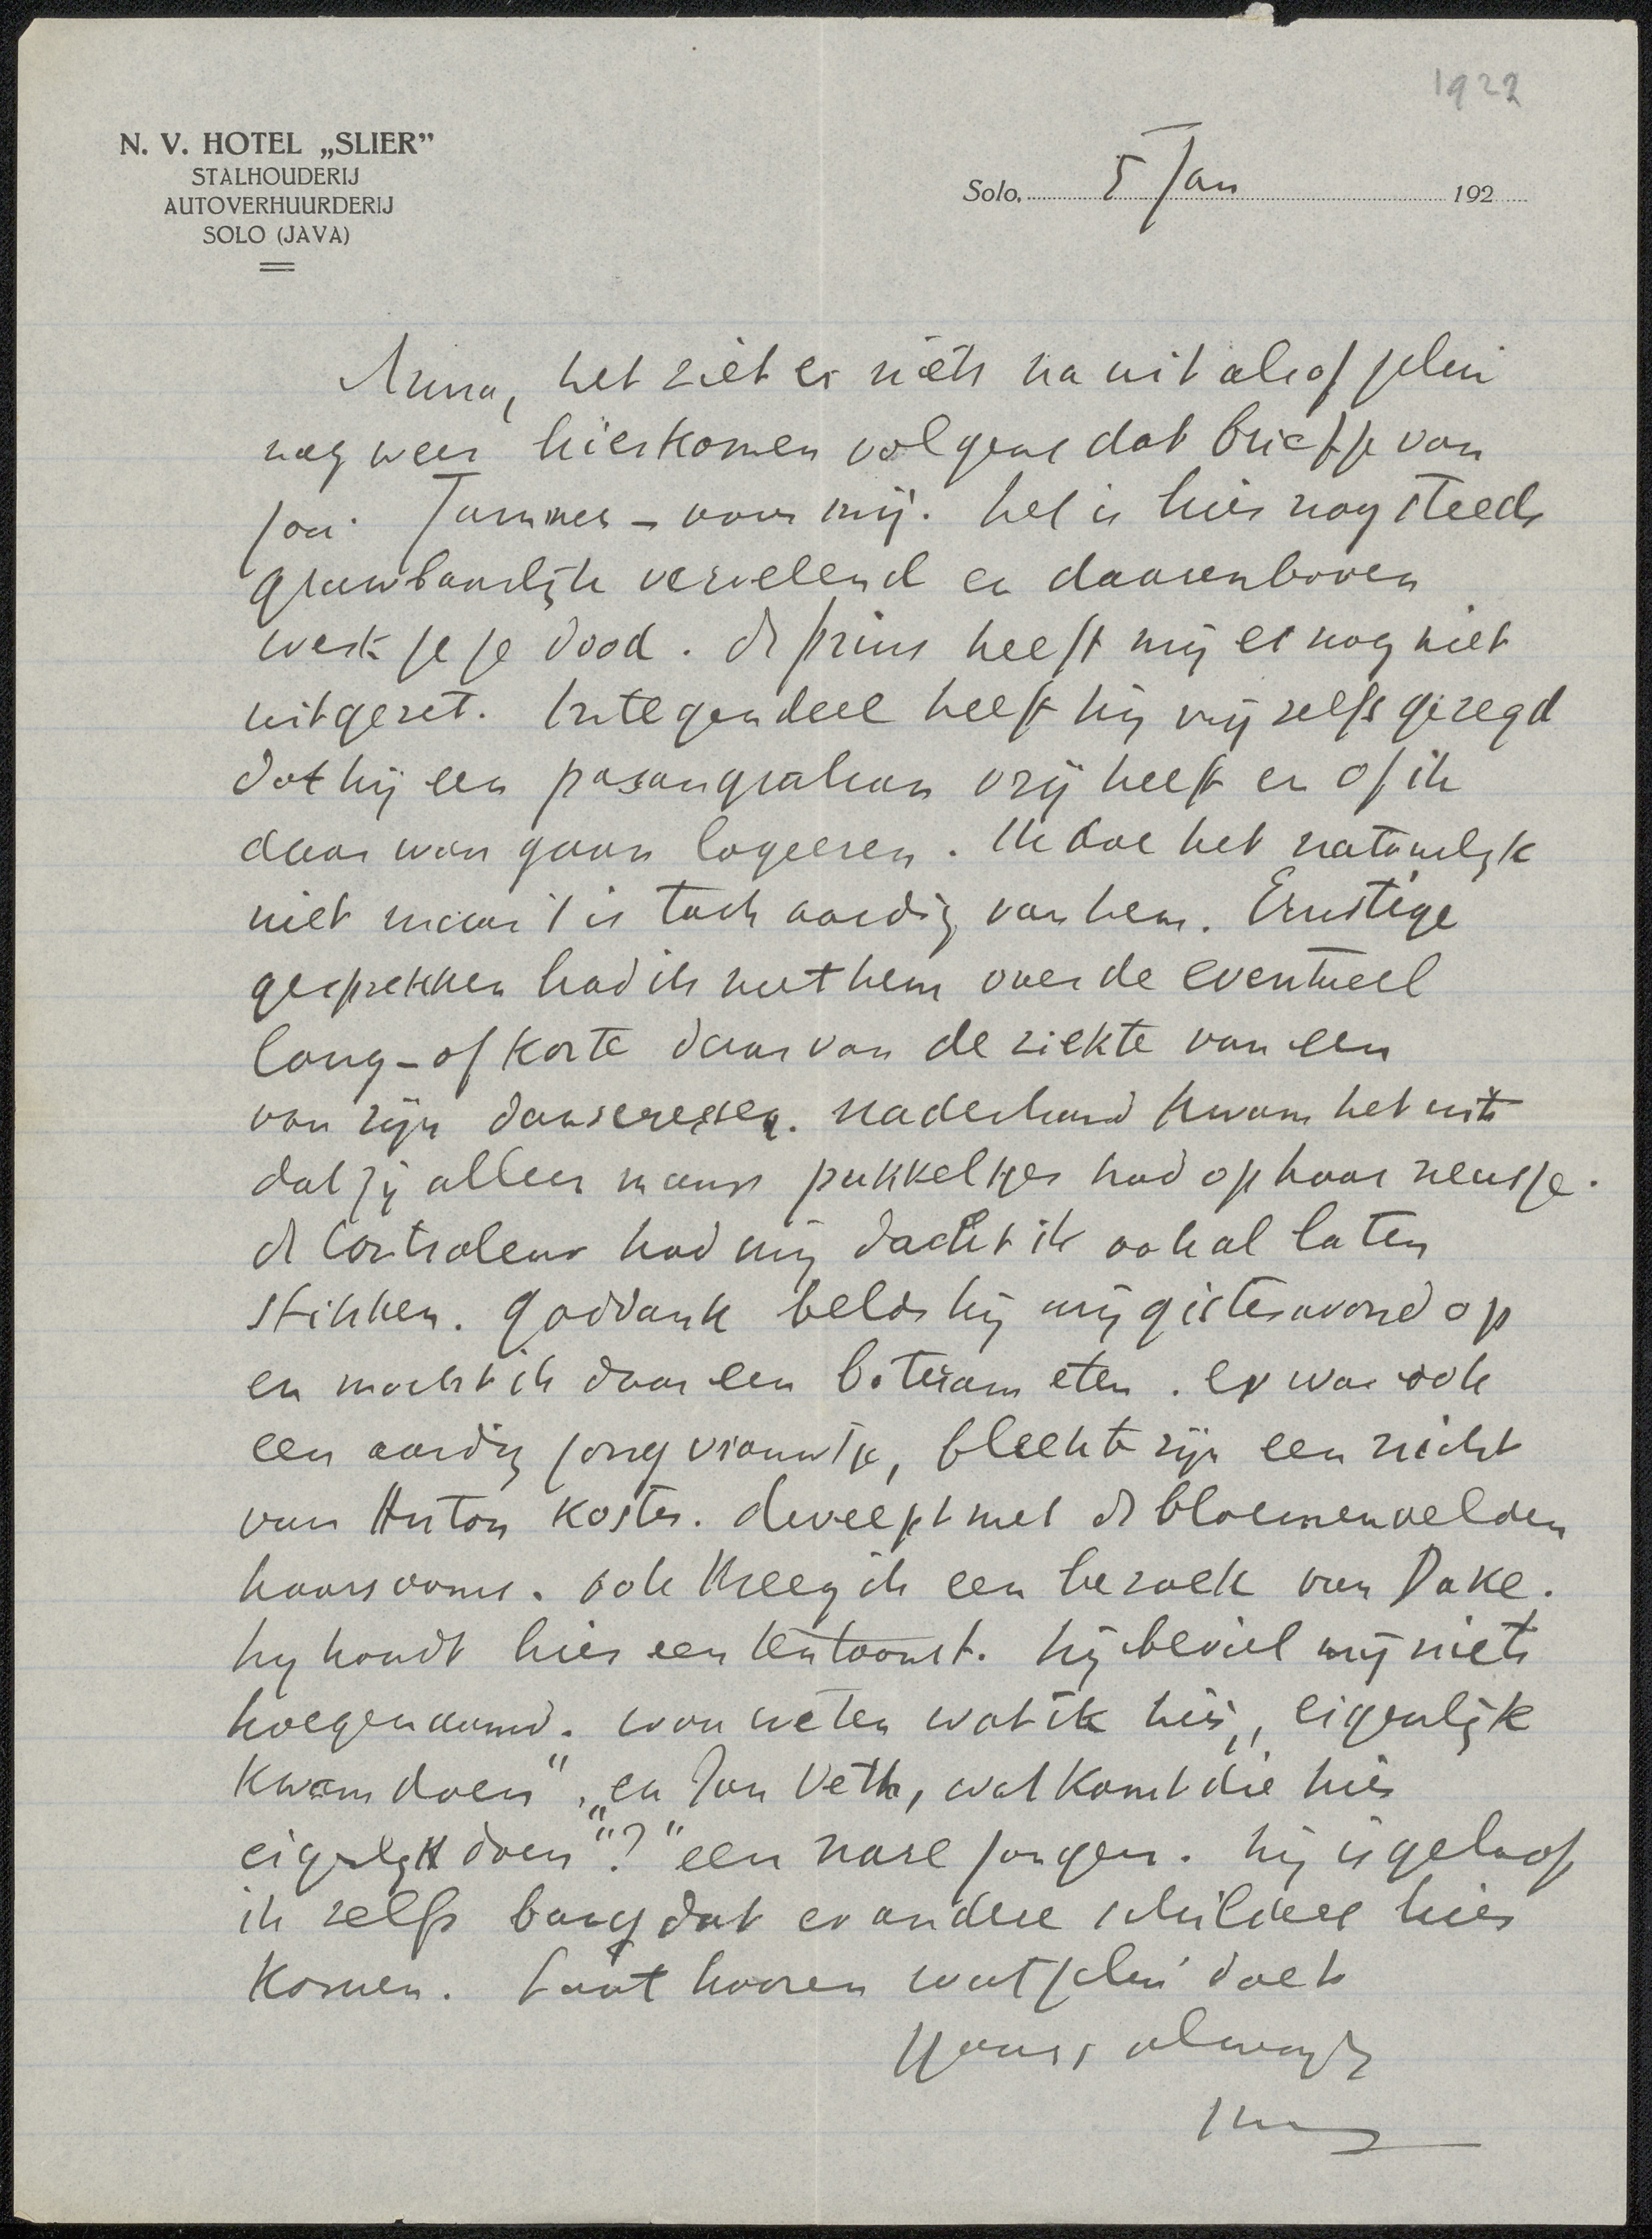 1922
N. V. HOTEL „SLIER”
STALHOUDERIJ
AUTOVERHUURDERIJ
SOLO (JAVA)
Solo, 5 Jan 192
Anna, het ziet er niets na uit alsof jelui
nog weer hierkomen volgens dat briefje van
jou Jammer – voor mij. het is hier nog steeds
gruwbaarlijk vervelend en daarenboven
werk je je dood. de prins heeft mij er nog niet
uitgezet. Integendeel heeft hij mij zelfs gezegd
dat hij een pasangrahan vrij heeft en of ik
daar wou gaan logeeren. Ik doe het natuurlijk
niet maar 't is toch aardig van hem. Ernstige
gesprekken had ik met hem over de eventueel
lang – of korte duur van de ziekte van een
van zijn danseressen. naderhand kwam het uit
dat zij alleen maar pukkeltjes had op haar neusje.
de Controleur had mij dacht ik ook al laten
stikken. Goddank belde hij mij gisteravond op
en mocht ik daar een boteram eten. er was ook
een aardig jong vrouwtje, bleek te zijn een nicht
van Anton Koster. dweept met de bloemenvelden
haars ooms. ook kreeg ik een bezoek van Dake.
hij houdt hier een tentoonst. hij beviel mij niets
hoegenaamd. wou weten wat ik hier „eigenlijk
kwam doen”. „en Jan Veth, wat komt die hier
eigenlijk doen”?” een nare jongen. hij is geloof
ik zelfs bang dat er andere schilders hier
komen. Laat hooren wat jelui doet
Yours always